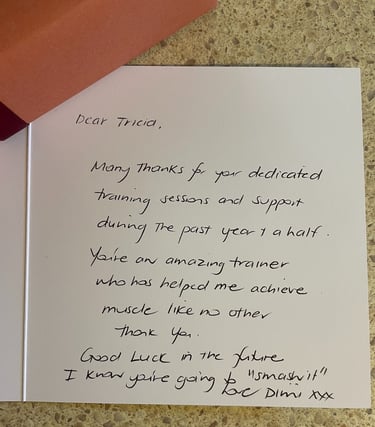 Dear Tricia,
Many Thanks for your dedicated
training sessions and support
during the past year & a half.
You're an amazing trainer
who has helped me achieve
muscle like no other
Thank you.
Good Luck in the future
I know you're going to "smash it"
Love Dimi xxx